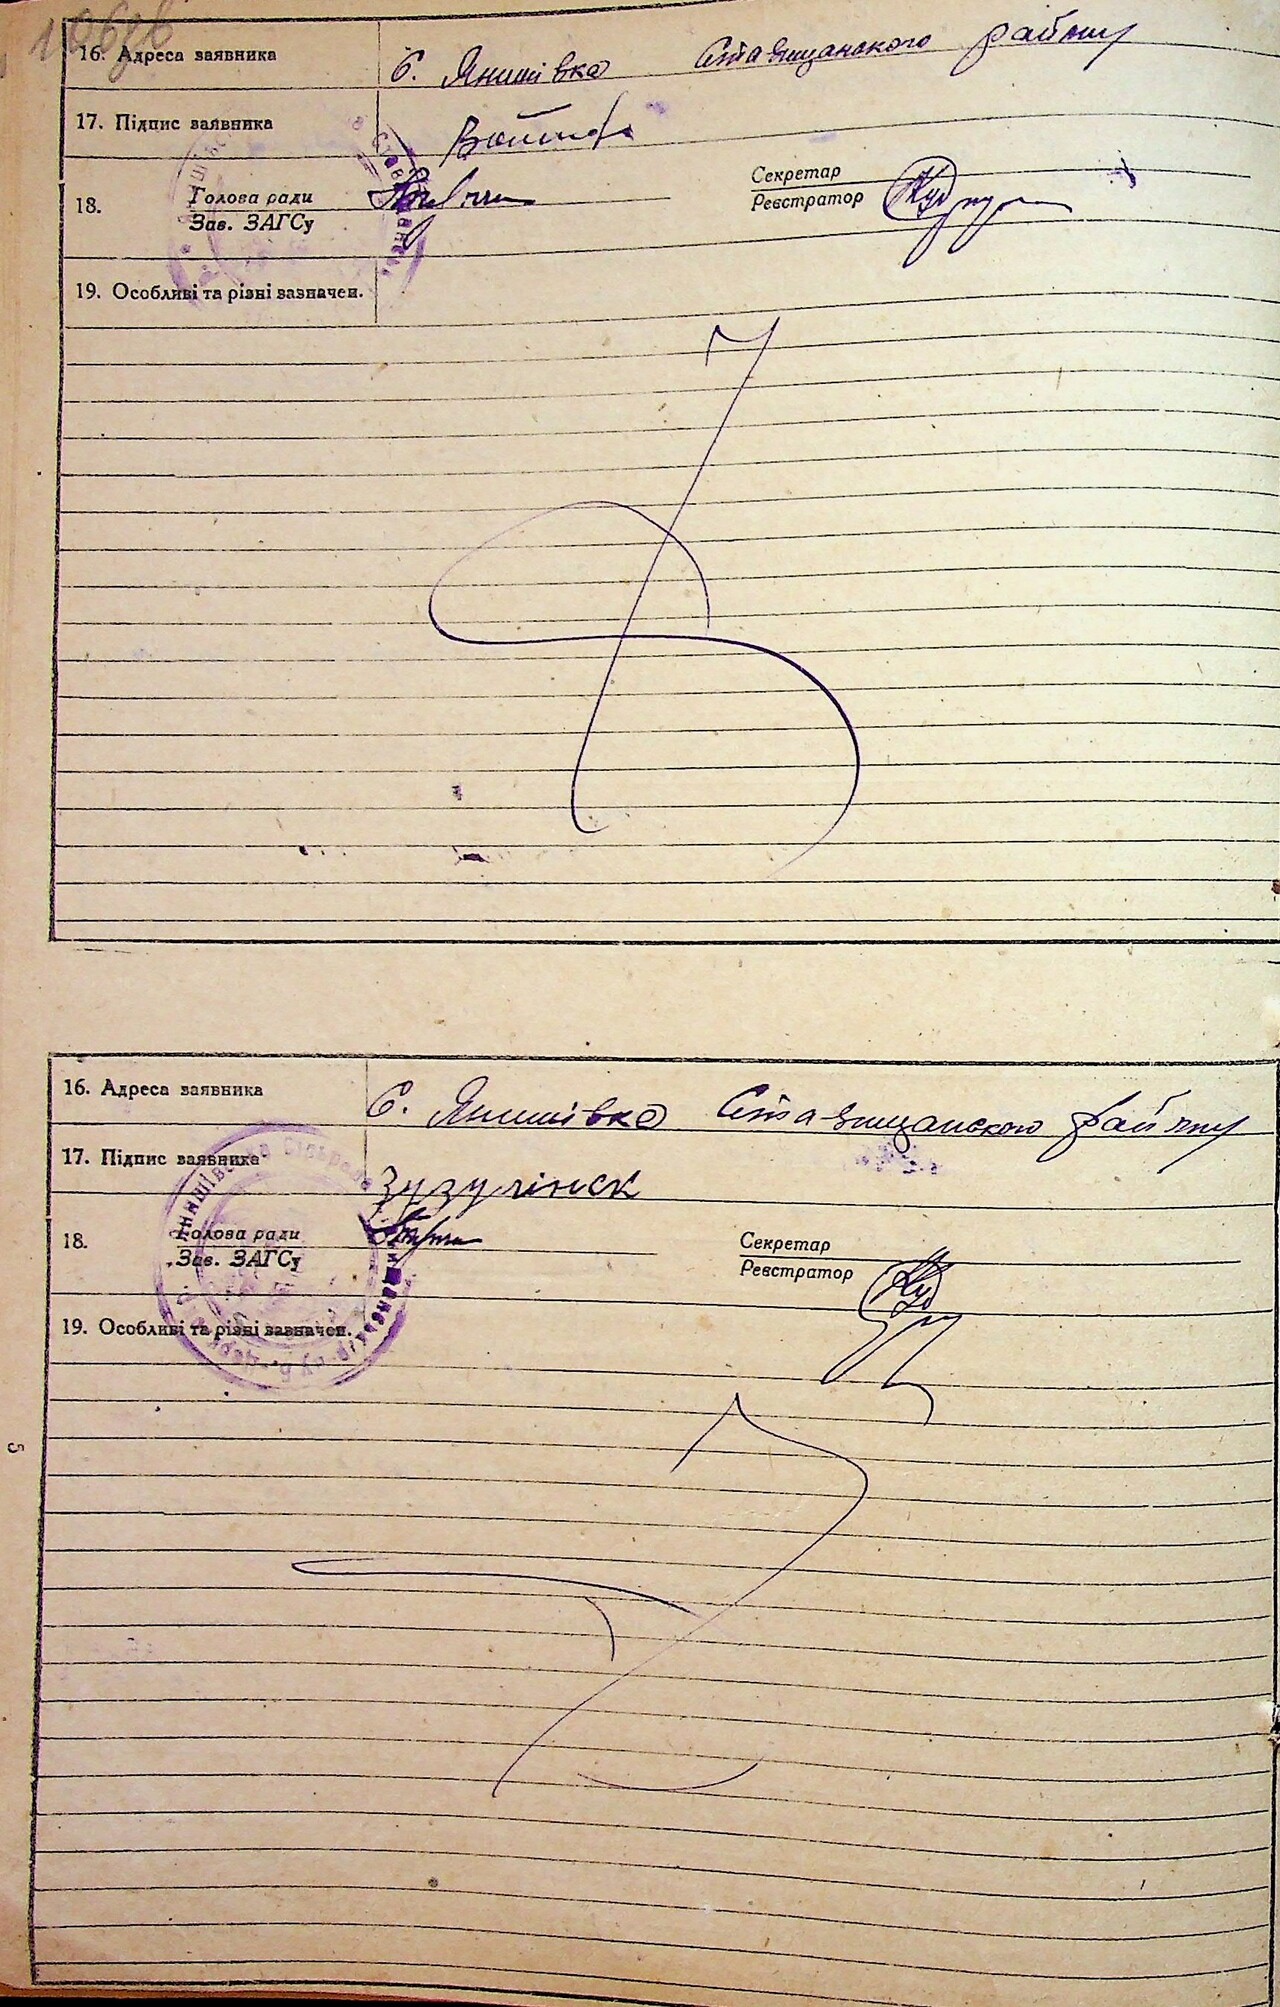 106зв
16. Адреса заявника с. Янишівка Ставищанского району
17. Підпис заявника
18. Голова ради Секретар
Зав. ЗАГСу Реєстратор
19. Особливі та різні зазначен.
16. Адреса заявника с. Янишівка Ставищанского району
17. Підпис заявника Зузулінск
18. Голова ради Секретар
Зав. ЗАГСу Реєстратор
19. Особливі та різні зазначен.
5